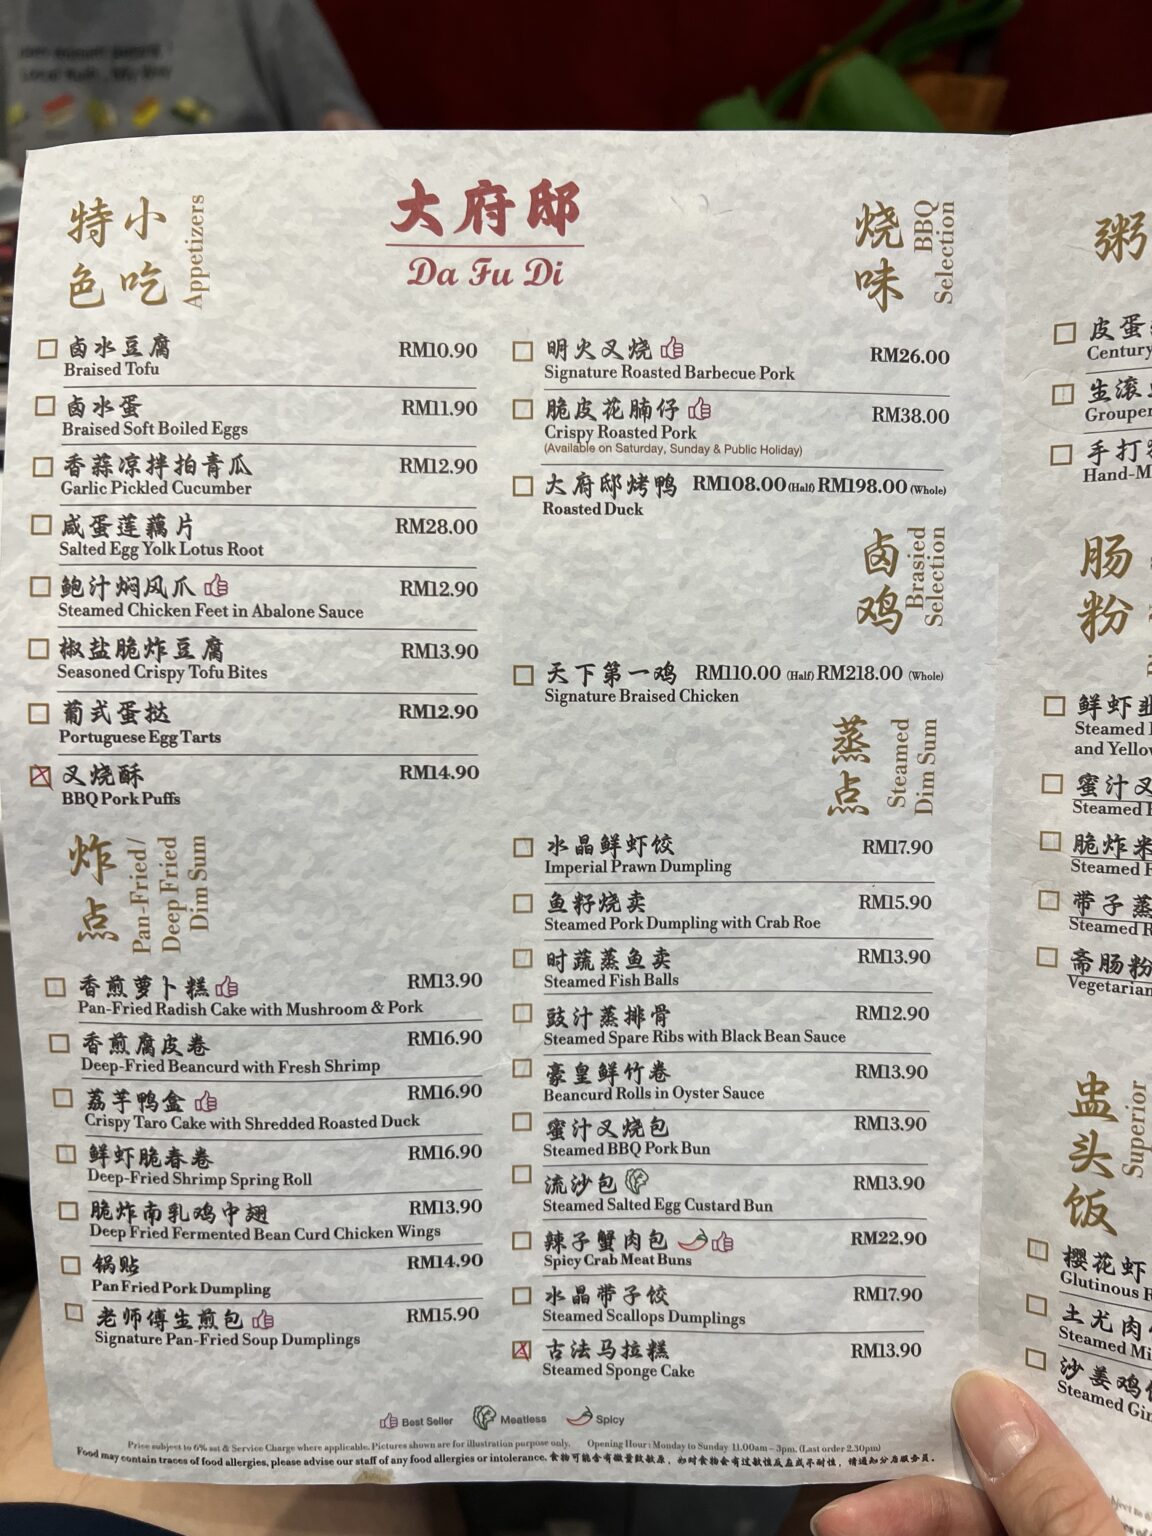 特色
小吃
Appetizers
大府邸
Da Fu Di
烧味
BBQ
Selection
卤水豆腐 RM10.90
Braised Tofu
卤水蛋 RM11.90
Braised Soft Boiled Eggs
香蒜凉拌拍青瓜 RM12.90
Garlic Pickled Cucumber
咸蛋莲藕片 RM28.00
Salted Egg Yolk Lotus Root
鲍汁焖凤爪 RM12.90
Steamed Chicken Feet in Abalone Sauce
椒盐脆炸豆腐 RM13.90
Seasoned Crispy Tofu Bites
葡式蛋挞 RM12.90
Portuguese Egg Tarts
叉烧酥 RM14.90
BBQ Pork Puffs
炸点
Pan-Fried/
Deep Fried
Dim Sum
香煎萝卜糕 RM13.90
Pan-Fried Radish Cake with Mushroom & Pork
香煎腐皮卷 RM16.90
Deep-Fried Beancurd with Fresh Shrimp
荔芋鸭盒 RM16.90
Crispy Taro Cake with Shredded Roasted Duck
鲜虾脆春卷 RM16.90
Deep-Fried Shrimp Spring Roll
脆炸南乳鸡中翅 RM13.90
Deep Fried Fermented Bean Curd Chicken Wings
锅贴 RM14.90
Pan Fried Pork Dumpling
老师傅生煎包 RM15.90
Signature Pan-Fried Soup Dumplings
明火叉烧 RM26.00
Signature Roasted Barbecue Pork
脆皮花腩仔 RM38.00
Crispy Roasted Pork
(Available on Saturday, Sunday & Public Holiday)
大府邸烤鸭 RM108.00 (Half) RM198.00 (Whole)
Roasted Duck
卤鸡
Brasied
Selection
天下第一鸡 RM110.00 (Half) RM218.00 (Whole)
Signature Braised Chicken
蒸点
Steamed
Dim Sum
水晶鲜虾饺 RM17.90
Imperial Prawn Dumpling
鱼籽烧卖 RM15.90
Steamed Pork Dumpling with Crab Roe
时蔬蒸鱼卖 RM13.90
Steamed Fish Balls
豉汁蒸排骨 RM12.90
Steamed Spare Ribs with Black Bean Sauce
豪皇鲜竹卷 RM13.90
Beancurd Rolls in Oyster Sauce
蜜汁叉烧包 RM13.90
Steamed BBQ Pork Bun
流沙包 RM13.90
Steamed Salted Egg Custard Bun
辣子蟹肉包 RM22.90
Spicy Crab Meat Buns
水晶带子饺 RM17.90
Steamed Scallops Dumplings
古法马拉糕 RM13.90
Steamed Sponge Cake
Best Seller Meatless Spicy
Price subject to 6% sst & Service Charge where applicable. Pictures shown are for illustration purpose only. Opening Hour : Monday to Sunday 11.00am - 3pm. (Last order 2.30pm)
Food may contain traces of food allergies, please advise our staff of any food allergies or intolerance. 食物可能含有微量致敏原，如对食物会有过敏性反应或不耐性，请通知分店服务员。
粥
皮蛋
Century
生滚
Grouper
手打
Hand-M
肠粉
鲜虾韭
Steamed
and Yellow
蜜汁叉
Steamed
脆炸米
Steamed
带子蒸
Steamed
斋肠粉
Vegetarian
盅头饭
Superior
樱花虾
Glutinous
土尤肉
Steamed Mi
沙姜鸡
Steamed Gin